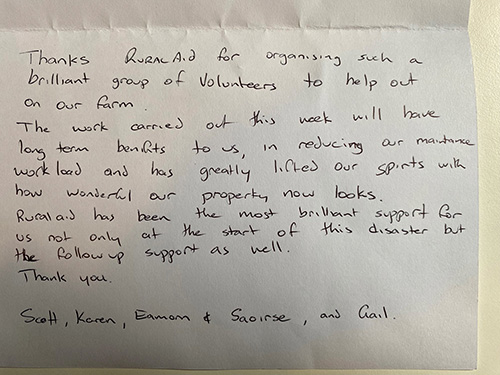 Thanks Rural Aid for organising such a
brilliant group of Volunteers to help out
on our farm.
The work carried out this week will have
long term benifits to us, in reducing our maintance
work load and has greatly lifted our spirts with
how wonderful our property now looks.
Rural aid has been the most brilliant support for
us not only at the start of this disaster but
the follow up support as well.
Thank you.
Scott, Karen, Eamonn & Saoirse, and Gail.